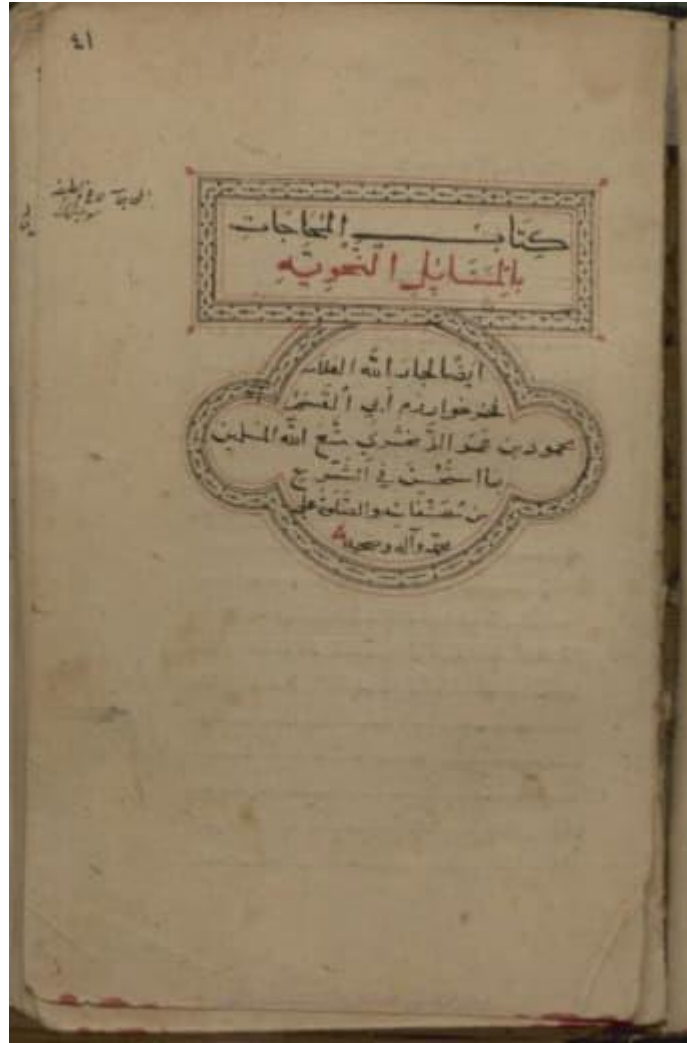 ٤١
كتاب المحاجات
بالمسائل النحويه
ايضا لجار الله العلامه
فخر خوارزم أبي القسم
محمود بن عمر الزمخشري متع الله المسلمين
بما استحسن في الشرع
من مصنفاته والصلوة على
محمد وآله وصحبه